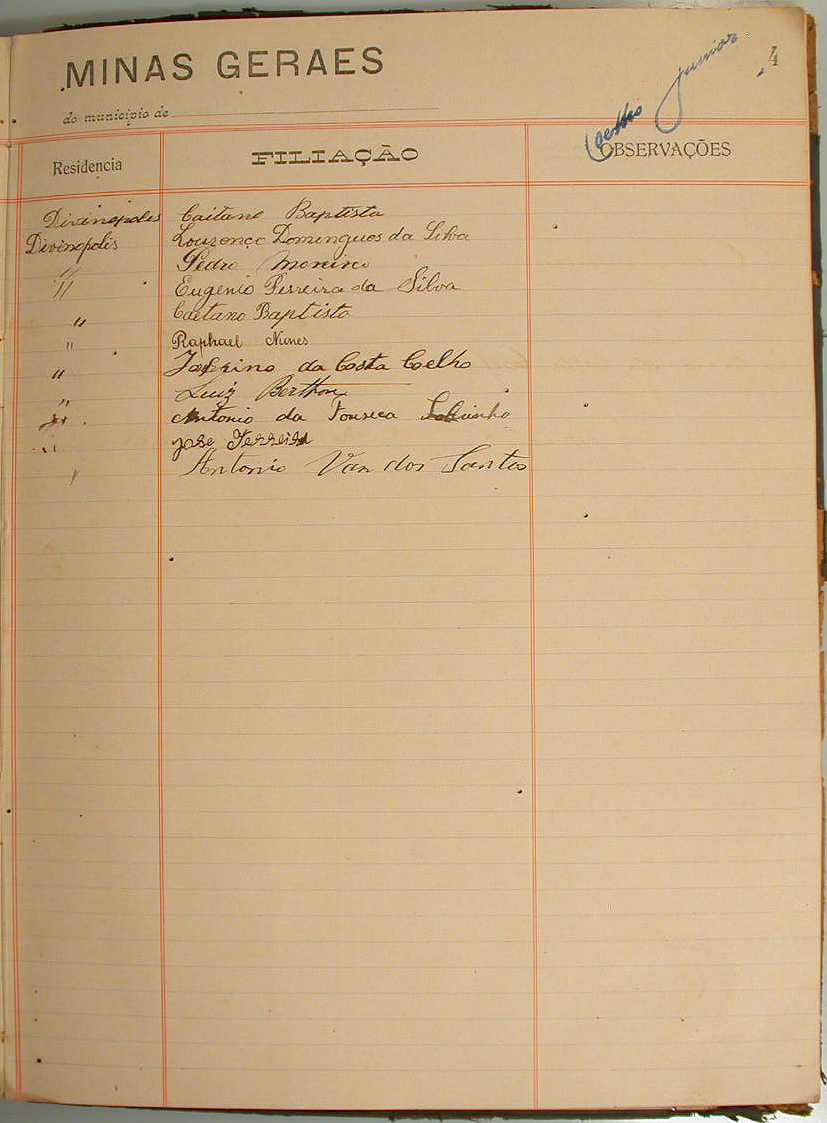 MINAS GERAES
4
Coelho Junior
do municipio de
Residencia FILIAÇÃO OBSERVAÇÕES
Divinopoles Caitano Baptista
Divinopolis Lourenço Domingues da Silva
" Pedro Moreira
" Eugenio Ferreira da Silva
" Caetano Baptista
" Raphael Nunes
" da Costa Coelho
" Luiz Berthon
" Antonio da Fonseca
" Jose Ferreira
" Antonio Van dos Santos